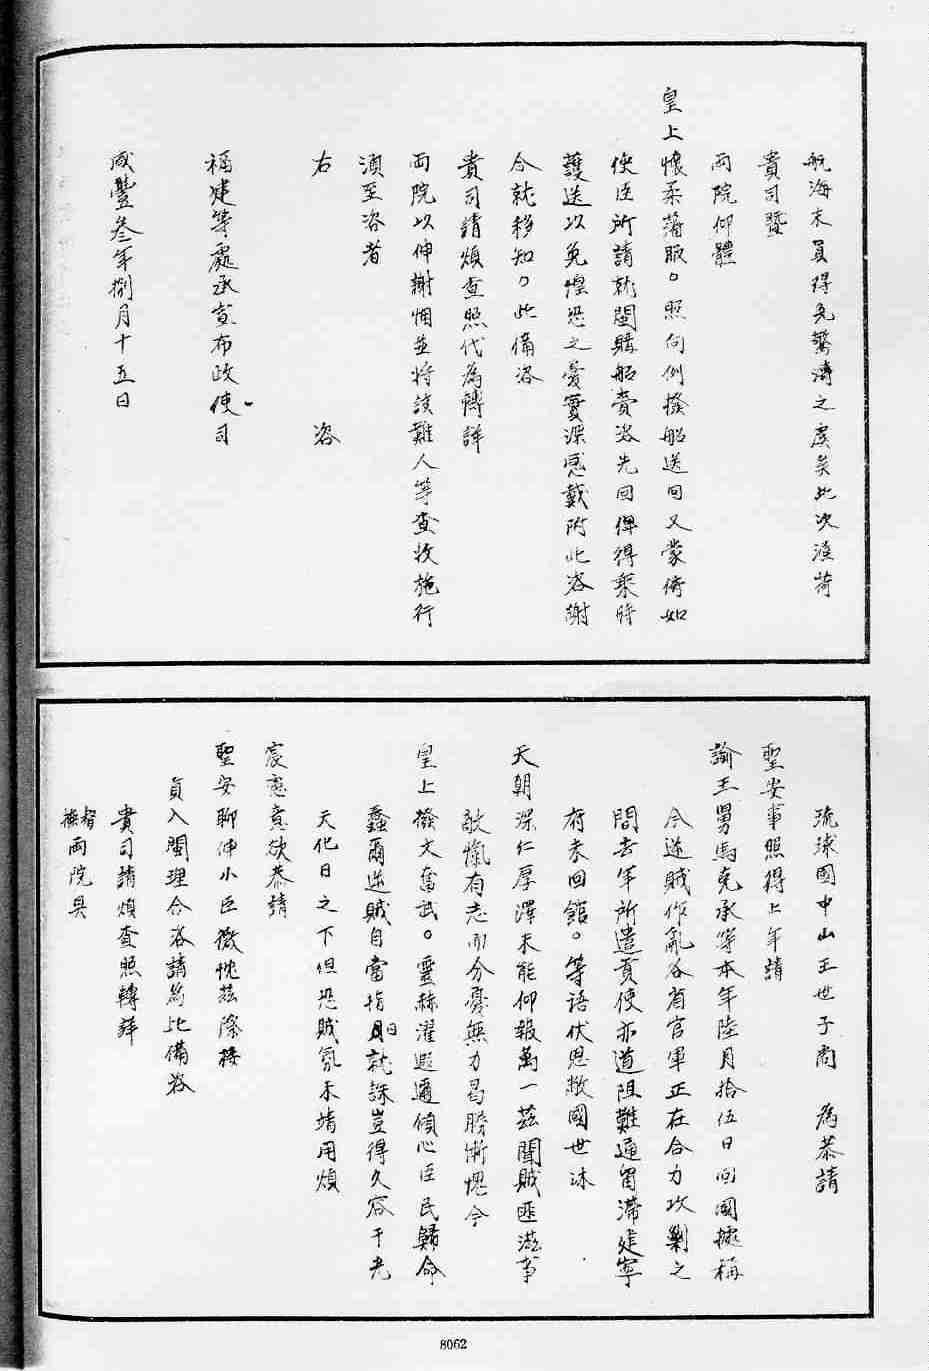 航海末員得免驚濤之虞矣此次渥荷
貴司暨
兩院仰體
皇上懷柔藩服。照向例撥船送回又蒙俯如
使臣所請就閩購船賫咨先回俾得乘時
護送以免惶恐之憂實深感戴附此咨謝
合就移知。此備咨
貴司請煩查照代為轉詳
兩院以伸謝悃並將該難人等查收施行
須至咨者
右 咨
福建等處承宣布政使司
咸豐叁年捌月十五日
琉球國中山王世子尚 為恭請
聖安事照得上年請
諭王舅馬克承等本年陸月拾伍日回國據稱
今逆賊作亂各省官軍正在合力攻剿之
間去年所遣貢使亦道阻難通留滯建寧
府未回館。等語伏思敝國世沐
天朝深仁厚澤未能仰報萬一茲聞賊匪滋事
敵愾有志而分憂無力曷勝慚愧今
皇上撥文奮武。靈赫濯遐邇傾心臣民歸命
蠢爾逆賊自當指日就誅豈得久容于光
天化日之下但恐賊氛未靖用煩
宸慮意欲恭請
聖安聊伸小臣微忱茲際接
貢入閩理合咨請為此備咨
貴司請煩查照轉詳
督撫兩院具
8062